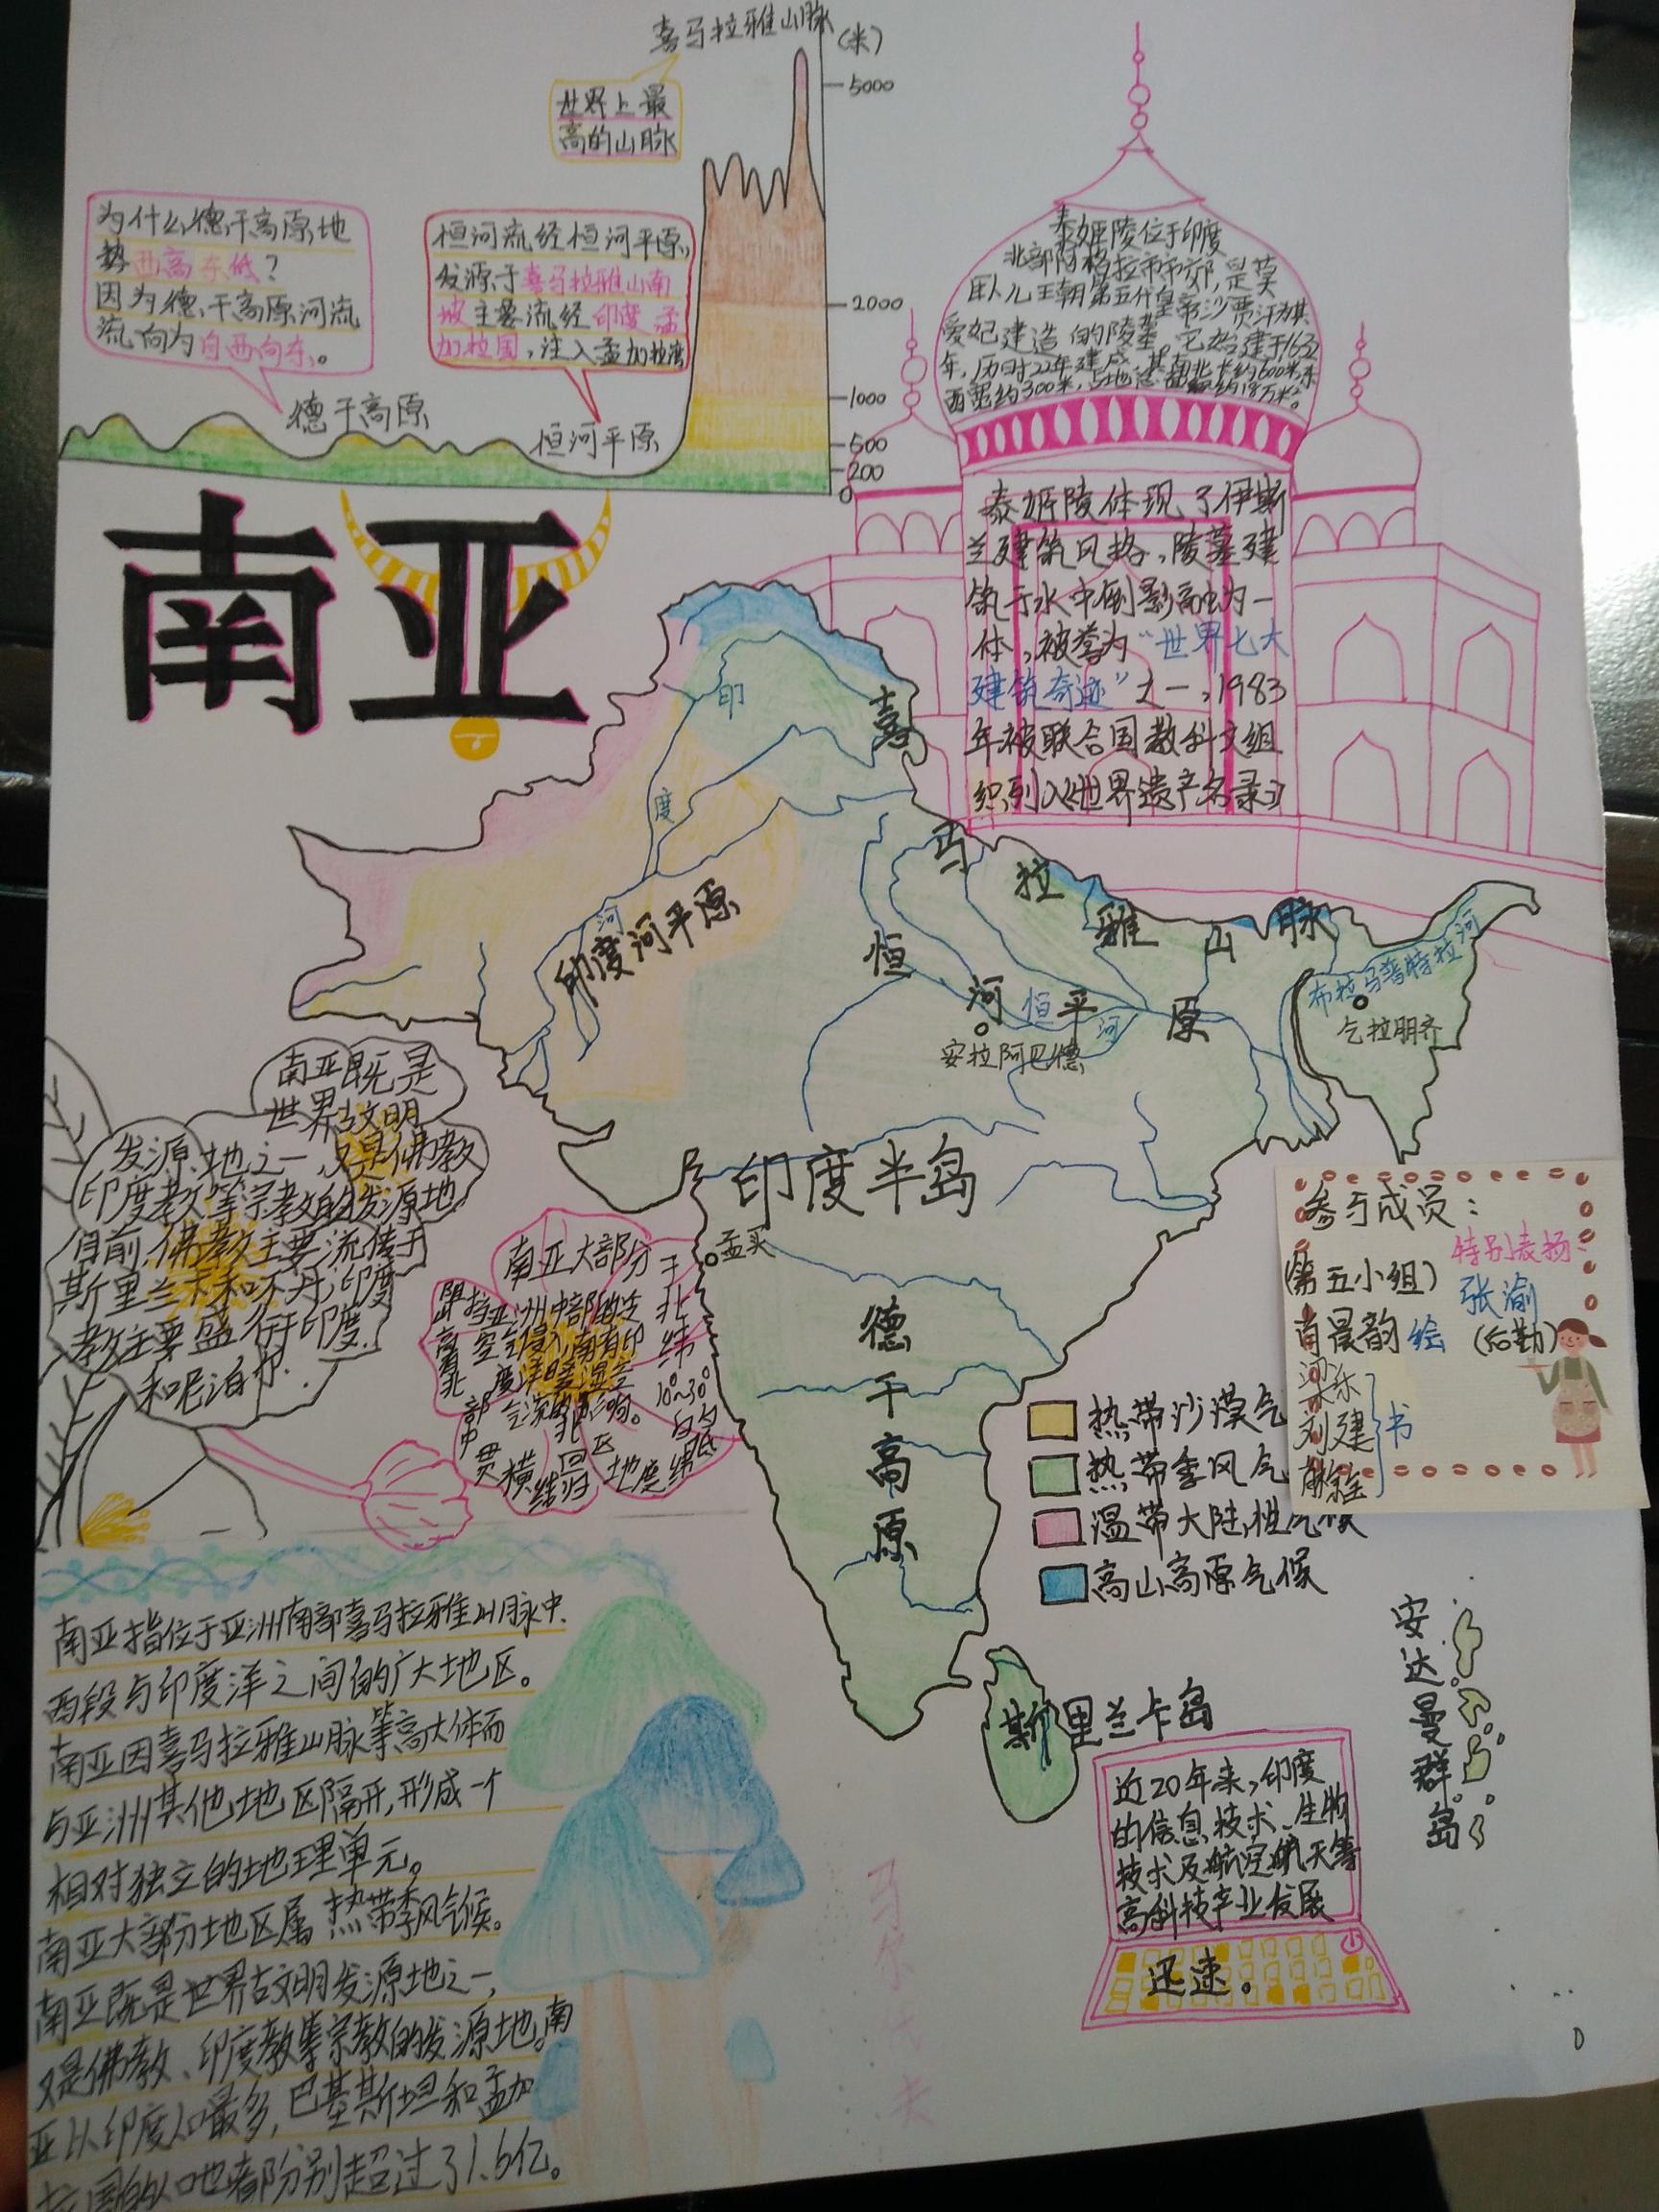 喜马拉雅山脉
(米)
世界上最
高的山脉
5000
2000
1000
500
200
0
为什么德干高原地
势西高东低?
因为德干高原河流
流向为自西向东。
恒河流经恒河平原,
发源于喜马拉雅山南
坡主要流经印度孟
加拉国,注入孟加拉湾
德干高原
恒河平原
泰姬陵位于印度
北部阿格拉市市郊,是莫
卧儿王朝第五代皇帝沙贾汗为其
爱妃建造的陵墓。它始建于1632
年,历时22年建成。其南北长约600米,东
西宽约300米,占地约18万米²。
泰姬陵体现了伊斯
兰建筑风格,陵墓建
筑于水中倒影融为一
体,被誉为“世界七大
建筑奇迹”之一,1983
年被联合国教科文组
织列入《世界遗产名录》
南亚
印
度
河
印度河平原
喜
马
拉
雅
山
脉
恒
河
平
原
恒
河
安拉阿巴德
布拉马普特拉河
乞拉朋齐
印度半岛
孟买
德
干
高
原
南亚既是
世界古文明
发源地之一,又是佛教
印度教等宗教的发源地
目前,佛教主要流传于
斯里兰卡和不丹,印度
教主要盛行于印度
和尼泊尔.
南亚大部分于
北
纬
10°~30°
热带沙漠气
热带季风气
温带大陆性气候
高山高原气候
参与成员:
特别表扬:
(第五小组)
张渝
肖晨韵 绘
(后勤)
刘建
书
斯里兰卡岛
安
达
曼
群
岛
近20年来,印度
的信息技术、生物
技术及航空航天等
高科技产业发展
迅速。
马
尔
代
夫
南亚指位于亚洲南部喜马拉雅山脉中.
西段与印度洋之间的广大地区。
南亚因喜马拉雅山脉等高大体而
与亚洲其他地区隔开,形成一个
相对独立的地理单元。
南亚大部分地区属热带季风气候。
南亚既是世界古文明发源地之一,
又是佛教、印度教等宗教的发源地。南
亚以印度人口最多,巴基斯坦和孟加
拉国的人口也都分别超过了1.6亿。